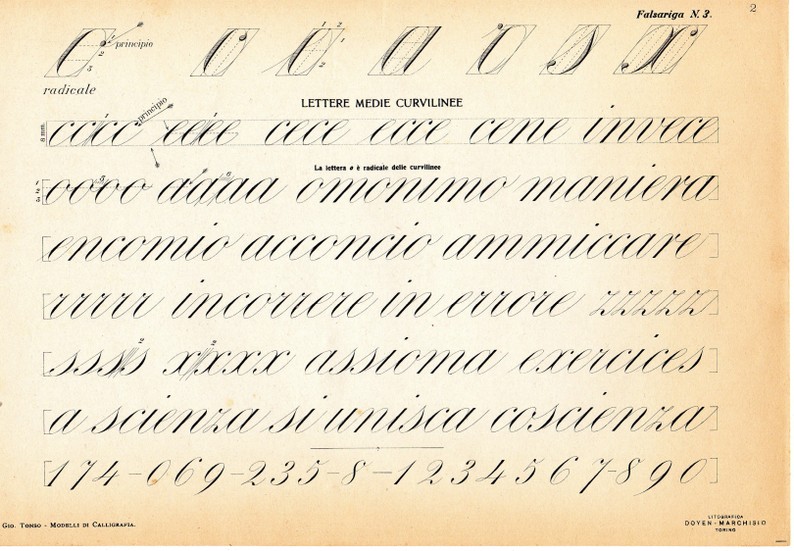 Falsariga N. 3.
2
principio
radicale
C e a r s x
LETTERE MEDIE CURVILINEE
8 mm.
principio
ccicc eeiee cece ecce cene invece
La lettera o è radicale delle curvilinee
oooo aaaaa omonimo maniera
encomio acconcio ammiccare
rrrrr incorrere in errore zzzzz
ssss xxxxx assioma exercices
a scienza si unisca coscienza
174-069-235-8-1234567-890
GIO. TONSO - MODELLI DI CALLIGRAFIA.
LITOGRAFICA
DOYEN-MARCHISIO
TORINO